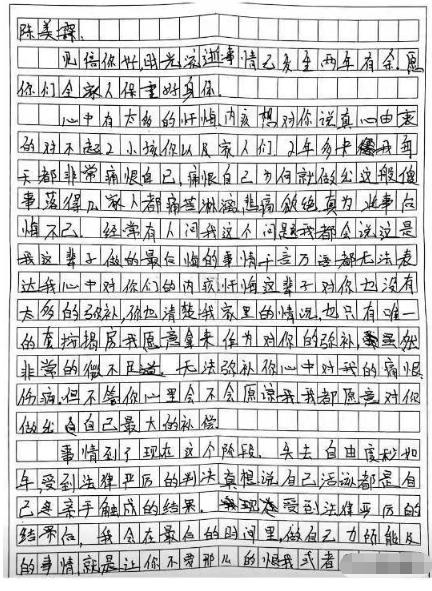 陈美霖.
见信你好.时光流逝事情已发至两年有余.愿
你们全家人保重好身体.
心中有太多的忏悔内疚想对你说真心由衷
的对不起2小孩你以及家人们2年多来我每
天都非常痛恨自己,痛恨自己为何就做出这般傻
事落得几家人都痛苦淋漓悲痛欲绝真为此事后
悔不已.经常有人问我这个问题我都会说这是
我这辈子做的最后悔的事情千言万语都无法表
达我心中对你们的内疚忏悔这辈子对你也没有
太多的弥补,你也清楚我家里的情况,也只有唯一
的房我愿意拿来作为对你的弥补虽然
非常的微不足道.无法弥补你心中对我的痛恨
伤痛.但不管你心里会不会原谅我我都愿意对你
做出自己最大的补偿
事情到了现在这个阶段.失去自由度秒如
年受到法律严厉的判决真想说自己活该都是自
己亲手触成的结果.受到法律严厉的
结果后,我会在最后的时间里做自己力所能及
的事情就是让你不要那么的恨我或者